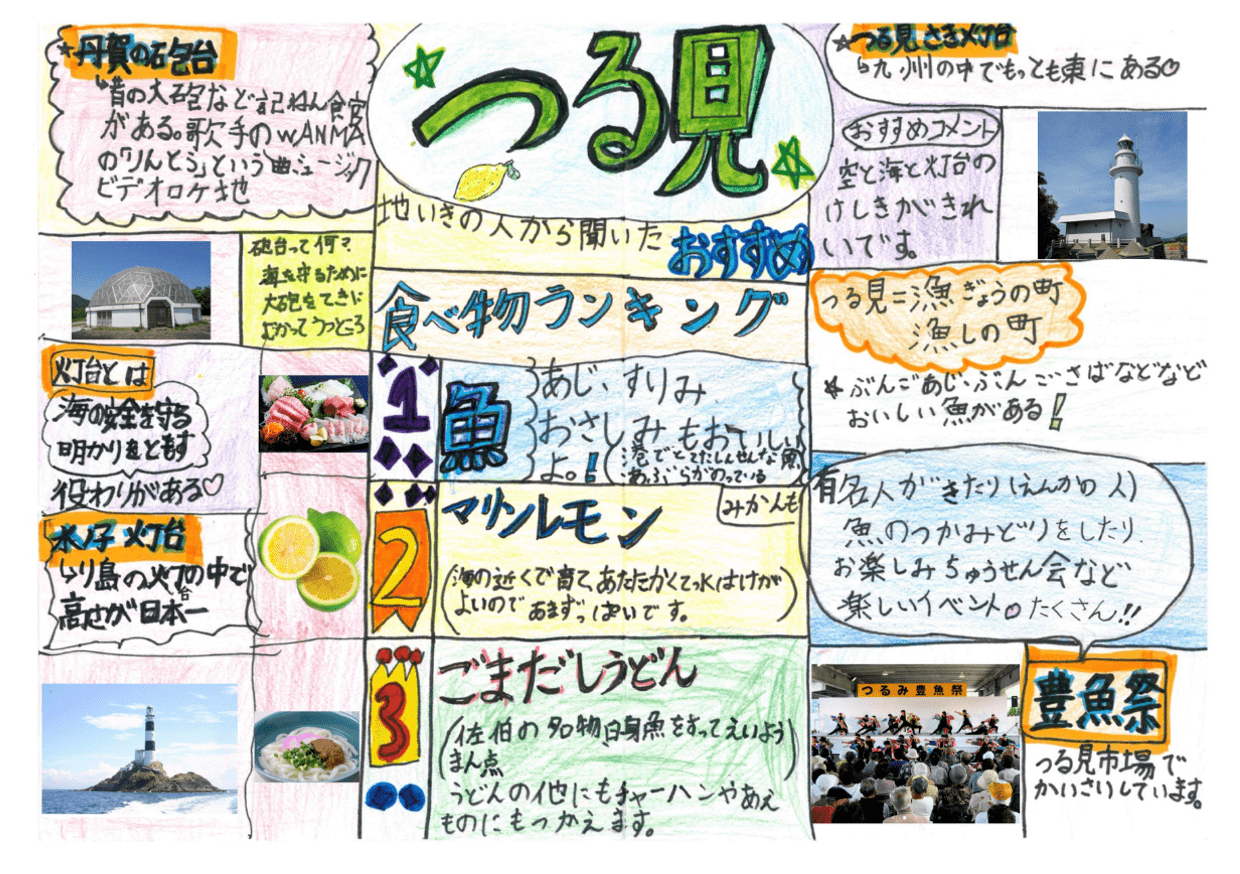 つる見
地いきの人から聞いた
おすすめ
食べ物ランキング
1
魚
あじ、すりみ
おさしみもおいしい
よ。!
港でとてたしんせんな魚
あぶらがのっている
2
マリンレモン
みかんも
(海の近くで育て、あたたかくて水はけが
よいのであまずっぱいです。)
3
ごまだしうどん
(佐伯の名物白身魚をすってえいよう
まん点)
うどんの他にもチャーハンやあえ
ものにもつかえます。
☆丹賀の砲台
↳昔の大砲など記ねん食官
がある。歌手のWANMA
の「りんとう」という曲ミュージック
ビデオロケ地
砲台って何?
海を守るために
大砲をてきに
むかってうつところ
灯台とは
海の安全を守る
明かりをともす
役わりがある♡
水ノ子灯台
↳り島の灯台の中で
高さが日本一
☆つる見さき灯台
↳九州の中でもっとも東にある♡
おすすめコメント
空と海と灯台の
けしきがきれ
いです。
つる見=漁ぎょうの町
漁しの町
☆ぶんごあじ・ぶんごさばなどなど
おいしい魚がある!
有名人がきたり(えんかの人)
魚のつかみどりをしたり、
お楽しみちゅうせん会など
楽しいイベント。たくさん!!
つるみ豊魚祭
豊魚祭
つる見市場で
かいさいしています。